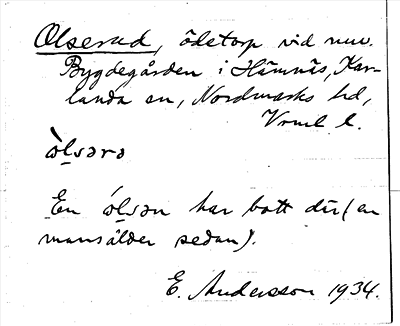 Olserud, ödetorp vid nuv.
Bygdegården i Hämnäs, Kar-
landa sn, Nordmarks hd,
Vrml l.
òlsərə
En ólsən har bott där (en
mansålder sedan).
E. Andersson 1934.